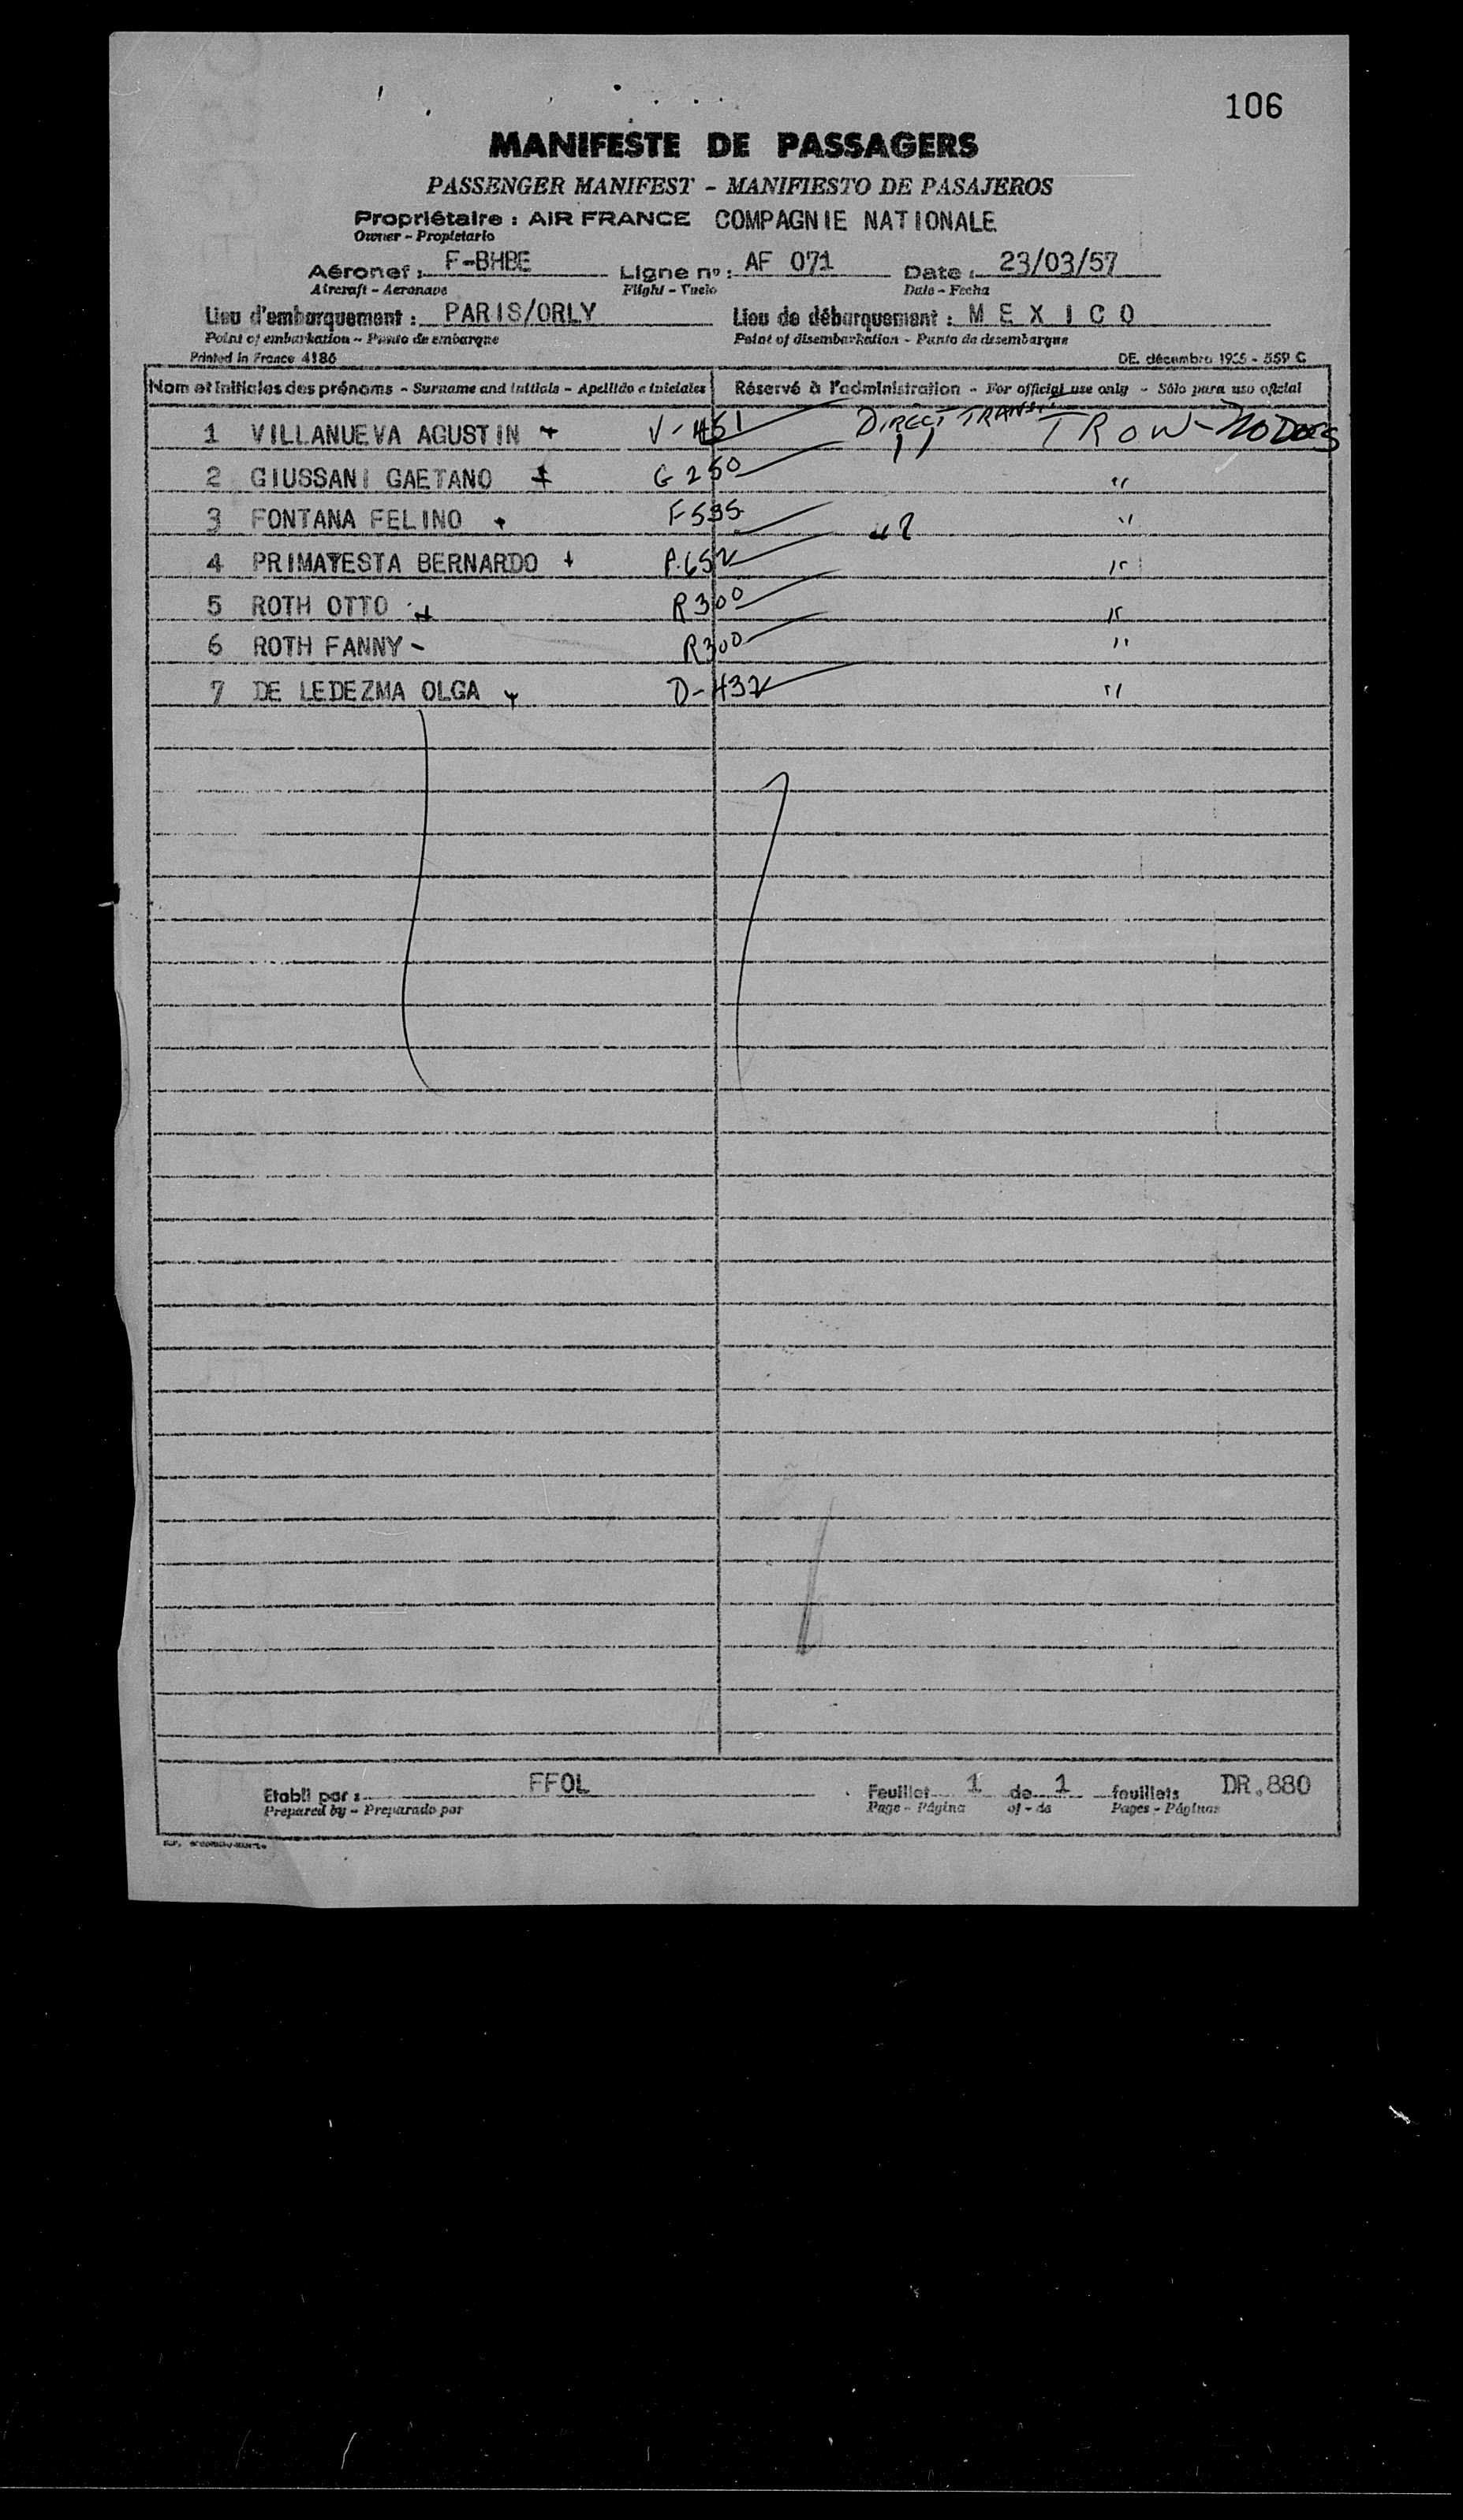 106
MANIFESTE DE PASSAGERS
PASSENGER MANIFEST - MANIFIESTO DE PASAJEROS
Propriétaire : AIR FRANCE COMPAGNIE NATIONALE
Owner - Propietario
Aéronef : F-BHBE Ligne nº : AF 071 Date : 23/03/57
Aircraft - Aeronave Flight - Vuelo Date - Fecha
Lieu d'embarquement : PARIS/ORLY Lieu de débarquement : M E X I C O
Point of embarkation - Punto de embarque Point of disembarkation - Punto de desembarque
Printed in France 4186 DE. décembre 1955 - 559 C
Nom et initiales des prénoms - Surname and initials - Apellido e iniciales Réservé à l'administration - For official use only - Sólo para uso oficial
1 VILLANUEVA AGUSTIN + V-451 DIRECT TRANSIT TROW-NO DOCS
2 GIUSSANI GAETANO + G 250 " "
3 FONTANA FELINO + F535 " "
4 PRIMATESTA BERNARDO + P.652 "
5 ROTH OTTO + R300 "
6 ROTH FANNY - R300 "
7 DE LEDEZMA OLGA + D-432 "
Etabli par : FFOL Feuillet 1 de 1 feuillets DR.880
Prepared by - Preparado por Page - Página of - de Pages - Páginas